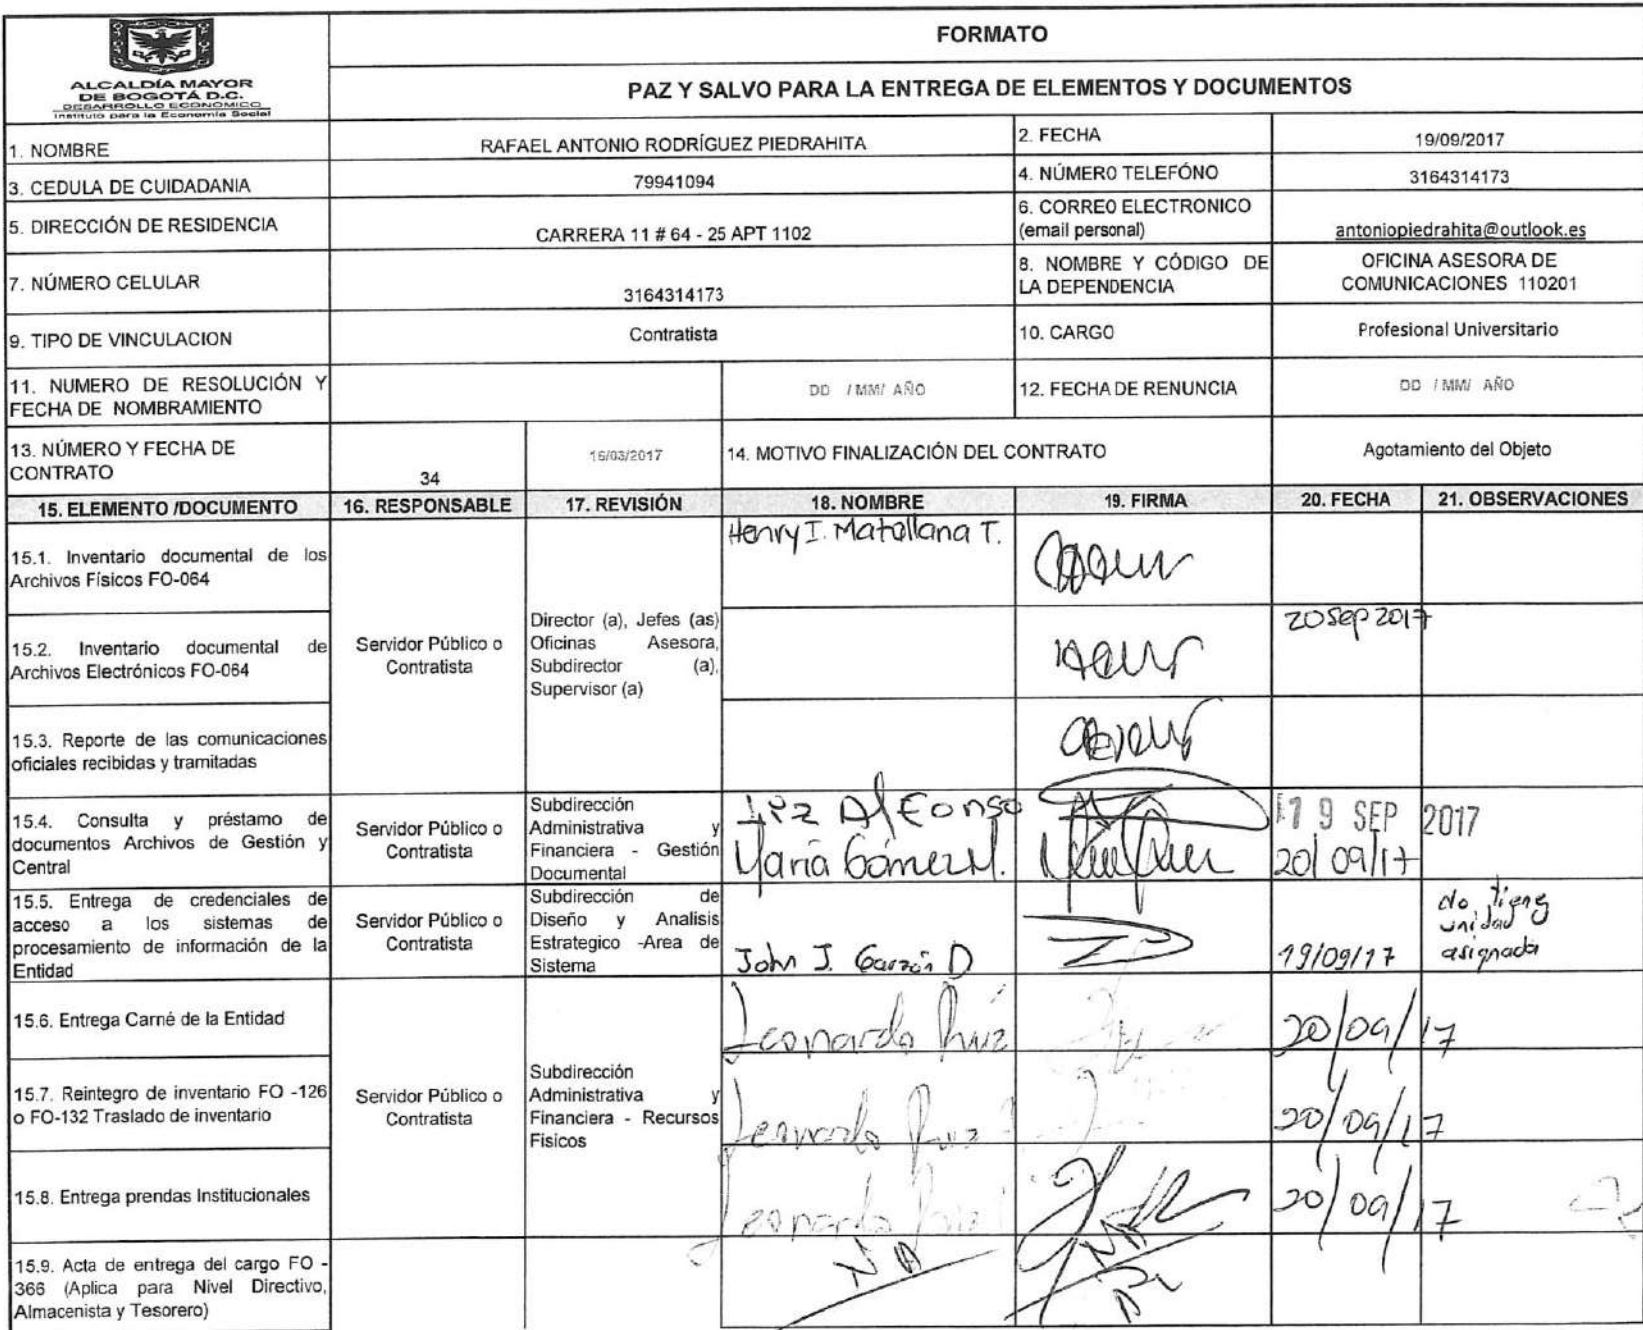 ALCALDÍA MAYOR
DE BOGOTÁ D.C.
DESARROLLO ECONÓMICO
Instituto para la Economía Social
FORMATO
PAZ Y SALVO PARA LA ENTREGA DE ELEMENTOS Y DOCUMENTOS
1. NOMBRE
RAFAEL ANTONIO RODRÍGUEZ PIEDRAHITA
2. FECHA
19/09/2017
3. CEDULA DE CUIDADANIA
79941094
4. NÚMERO TELEFÓNO
3164314173
5. DIRECCIÓN DE RESIDENCIA
CARRERA 11 # 64 - 25 APT 1102
6. CORREO ELECTRONICO
(email personal)
antoniopiedrahita@outlook.es
7. NÚMERO CELULAR
3164314173
8. NOMBRE Y CÓDIGO DE
LA DEPENDENCIA
OFICINA ASESORA DE
COMUNICACIONES 110201
9. TIPO DE VINCULACION
Contratista
10. CARGO
Profesional Universitario
11. NUMERO DE RESOLUCIÓN Y
FECHA DE NOMBRAMIENTO
DD / MM/ AÑO
12. FECHA DE RENUNCIA
DD / MM/ AÑO
13. NÚMERO Y FECHA DE
CONTRATO
34
16/03/2017
14. MOTIVO FINALIZACIÓN DEL CONTRATO
Agotamiento del Objeto
15. ELEMENTO /DOCUMENTO
16. RESPONSABLE
17. REVISIÓN
18. NOMBRE
19. FIRMA
20. FECHA
21. OBSERVACIONES
15.1. Inventario documental de los
Archivos Físicos FO-064
Henry I. Matallana T.
15.2. Inventario documental de
Archivos Electrónicos FO-064
Servidor Público o
Contratista
Director (a), Jefes (as)
Oficinas Asesora,
Subdirector (a),
Supervisor (a)
20 Sep 2017
15.3. Reporte de las comunicaciones
oficiales recibidas y tramitadas
15.4. Consulta y préstamo de
documentos Archivos de Gestión y
Central
Servidor Público o
Contratista
Subdirección
Administrativa y
Financiera - Gestión
Documental
Liz Alfonso
María Gómez M.
19 SEP 2017
20/09/17
15.5. Entrega de credenciales de
acceso a los sistemas de
procesamiento de información de la
Entidad
Servidor Público o
Contratista
Subdirección de
Diseño y Analisis
Estrategico -Area de
Sistema
John J. Garzón D
19/09/17
No tiene
unidad
asignada
15.6. Entrega Carné de la Entidad
Leonardo Ruiz
20/09/17
15.7. Reintegro de inventario FO -126
o FO-132 Traslado de inventario
Servidor Público o
Contratista
Subdirección
Administrativa y
Financiera - Recursos
Fisicos
Leonardo Ruiz
20/09/17
15.8. Entrega prendas Institucionales
Leonardo Ruiz
20/09/17
15.9. Acta de entrega del cargo FO -
366 (Aplica para Nivel Directivo,
Almacenista y Tesorero)
NA